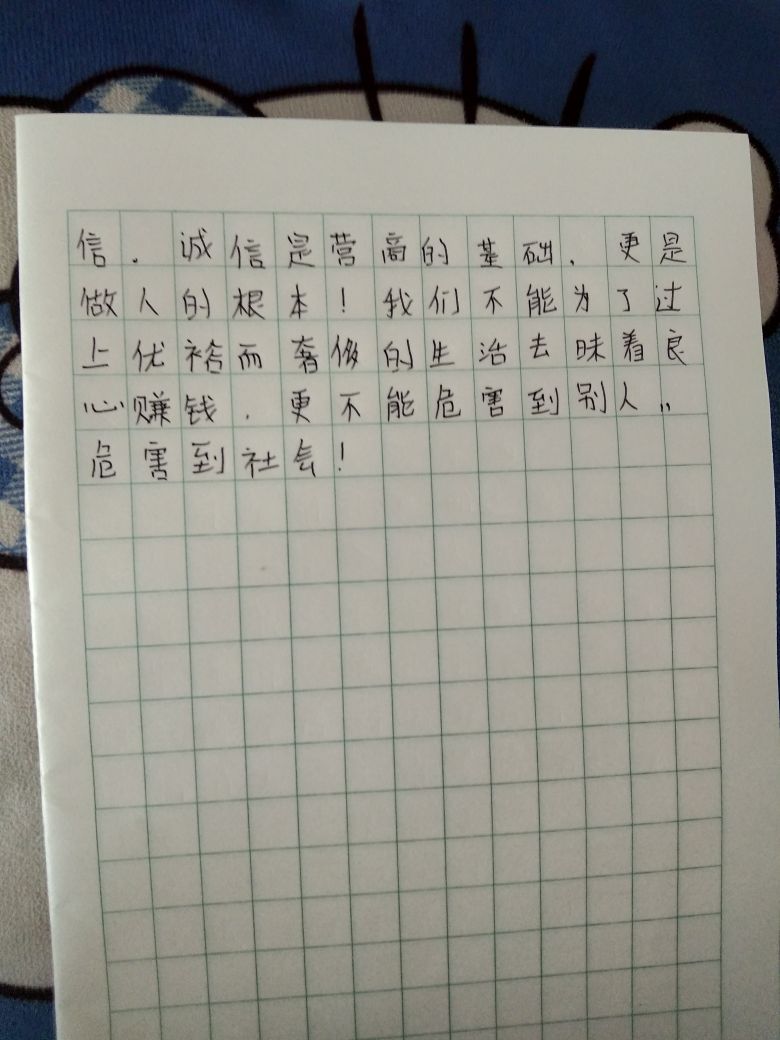 信，诚信是营商的基础，更是
做人的根本！我们不能为了过
上优裕而奢侈的生活去昧着良
心赚钱，更不能危害到别人，，
危害到社会！